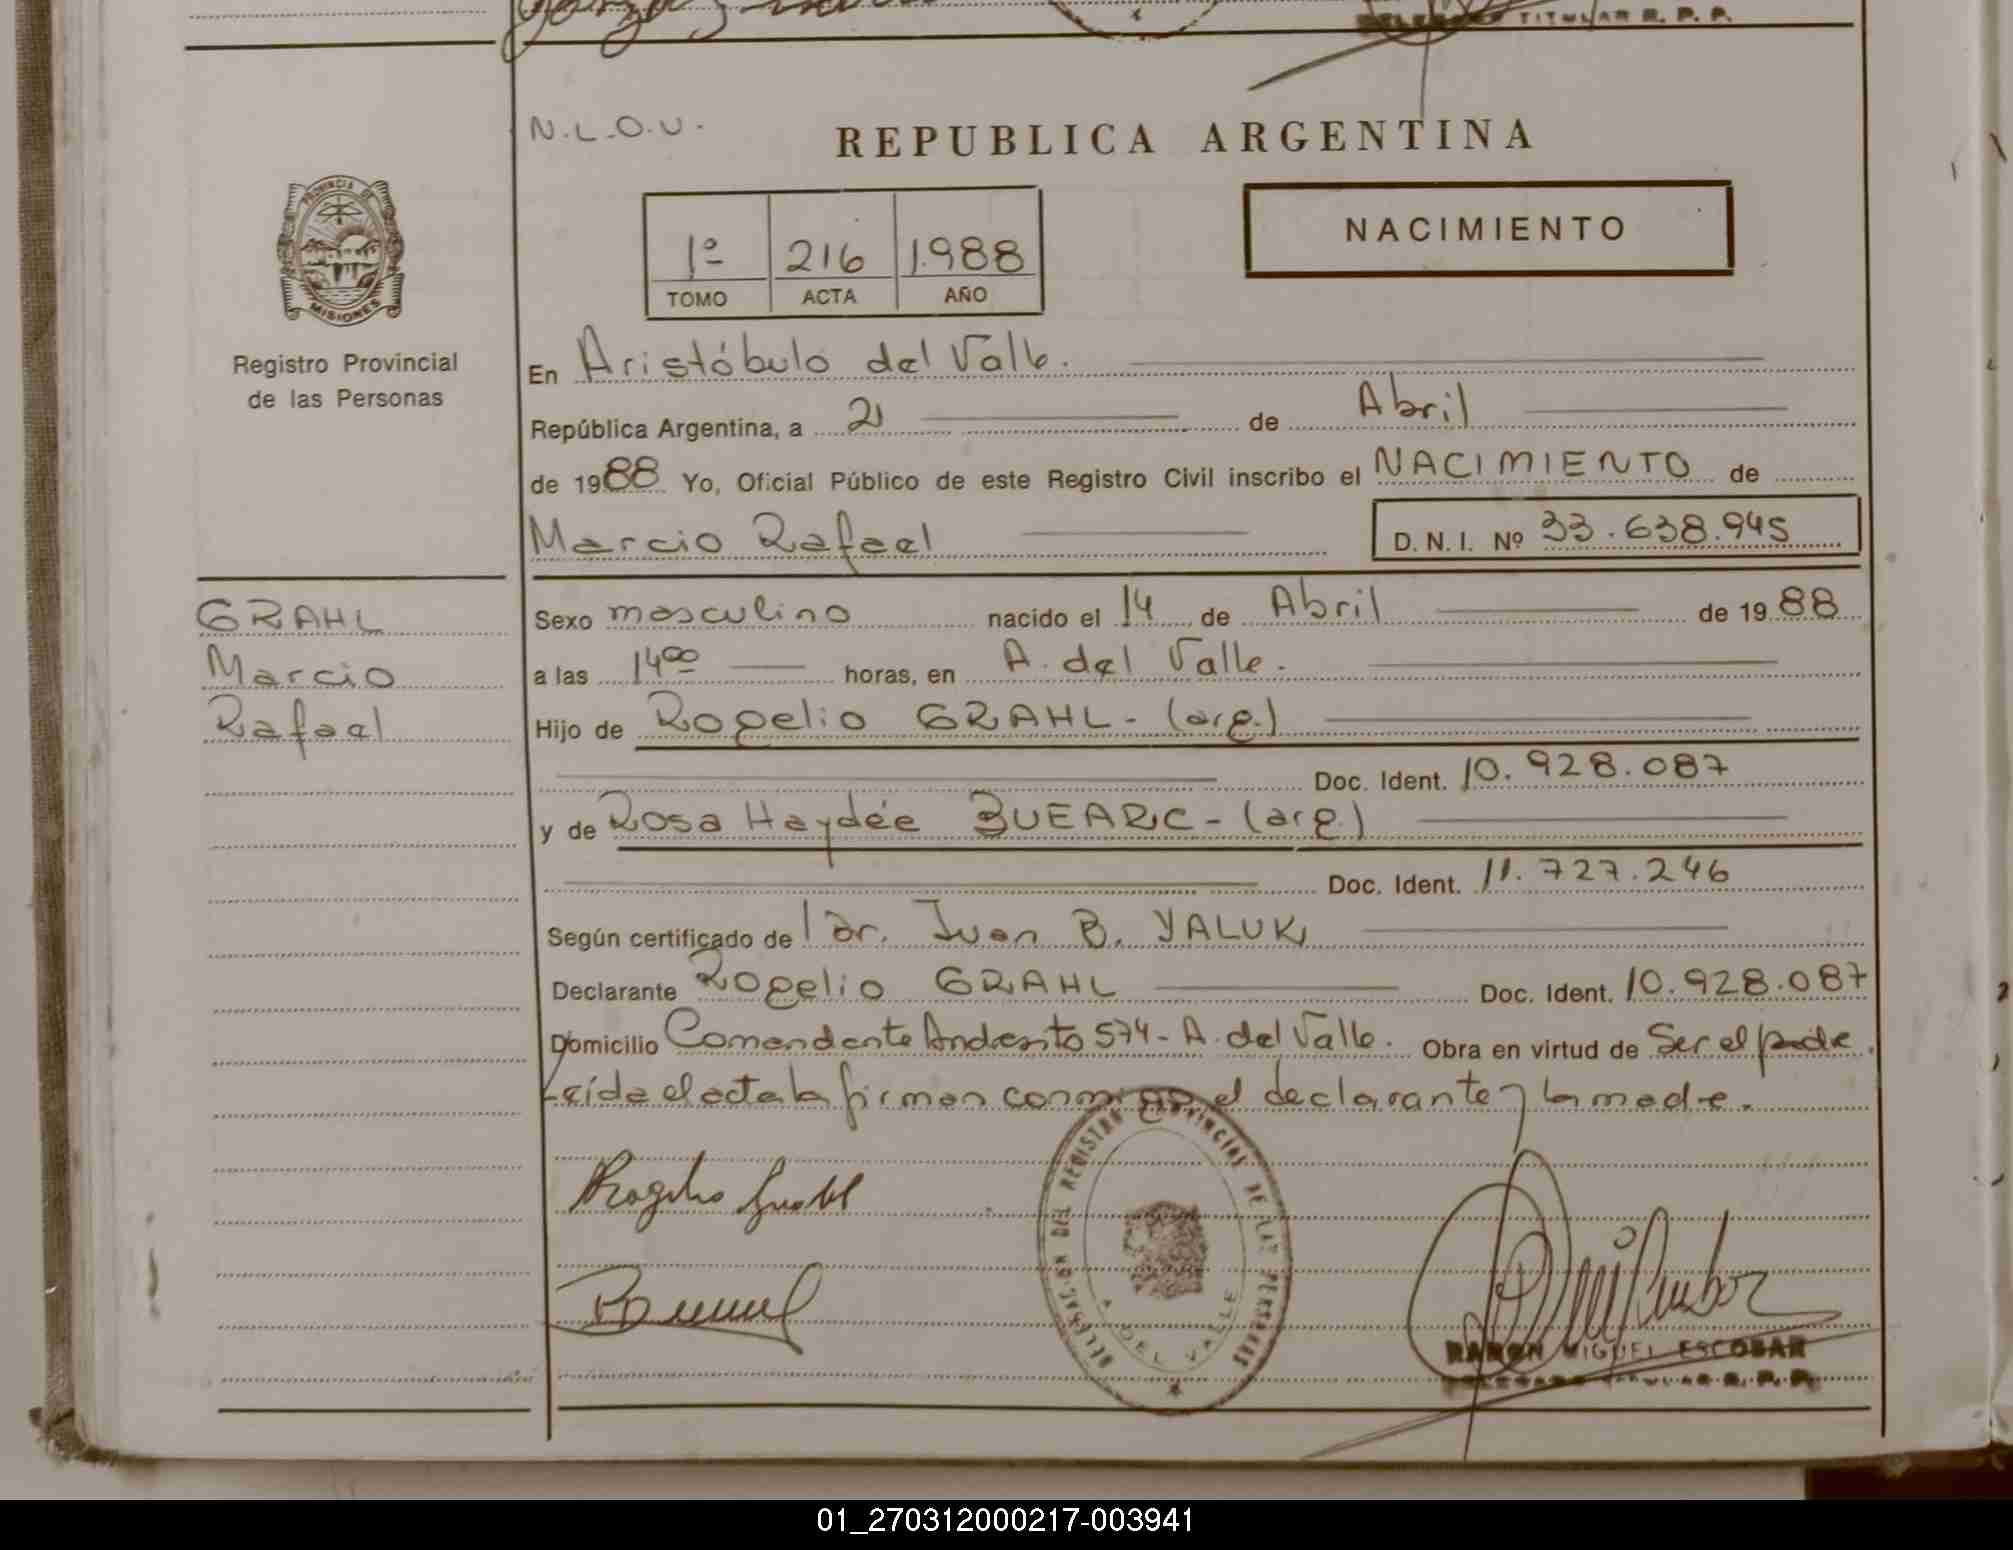 TITULAR R. P. P.
N.L.O.U.
REPUBLICA ARGENTINA
PROVINCIA DE
MISIONES
1º 216 1.988
TOMO ACTA AÑO
NACIMIENTO
Registro Provincial
de las Personas
En Aristóbulo del Valle.
República Argentina, a 21 de Abril
de 1988 Yo, Oficial Público de este Registro Civil inscribo el NACIMIENTO de
Marcio Rafael D. N. I. Nº 33.638.945
GRAHL
Marcio
Rafael
Sexo masculino nacido el 14 de Abril de 1988
a las 14⁰⁰ horas, en A. del Valle.
Hijo de Rogelio GRAHL - (arg.)
Doc. Ident. 10.928.087
y de Rosa Haydée BUEARC - (arg.)
Doc. Ident. 11.727.246
Según certificado de Dr. Juan B. YALUK,
Declarante Rogelio GRAHL Doc. Ident. 10.928.087
Domicilio Comandante Andresito 574 - A. del Valle. Obra en virtud de Ser el padre.
Leída el acta la firman conmigo el declarante y la madre.
Rogelio Grahl
DELEGACION DEL REGISTRO PROVINCIAL DE LAS PERSONAS
A. DEL VALLE
RAMON MIGUEL ESCOBAR
DELEGADO TITULAR R. P. P.
01_270312000217-003941